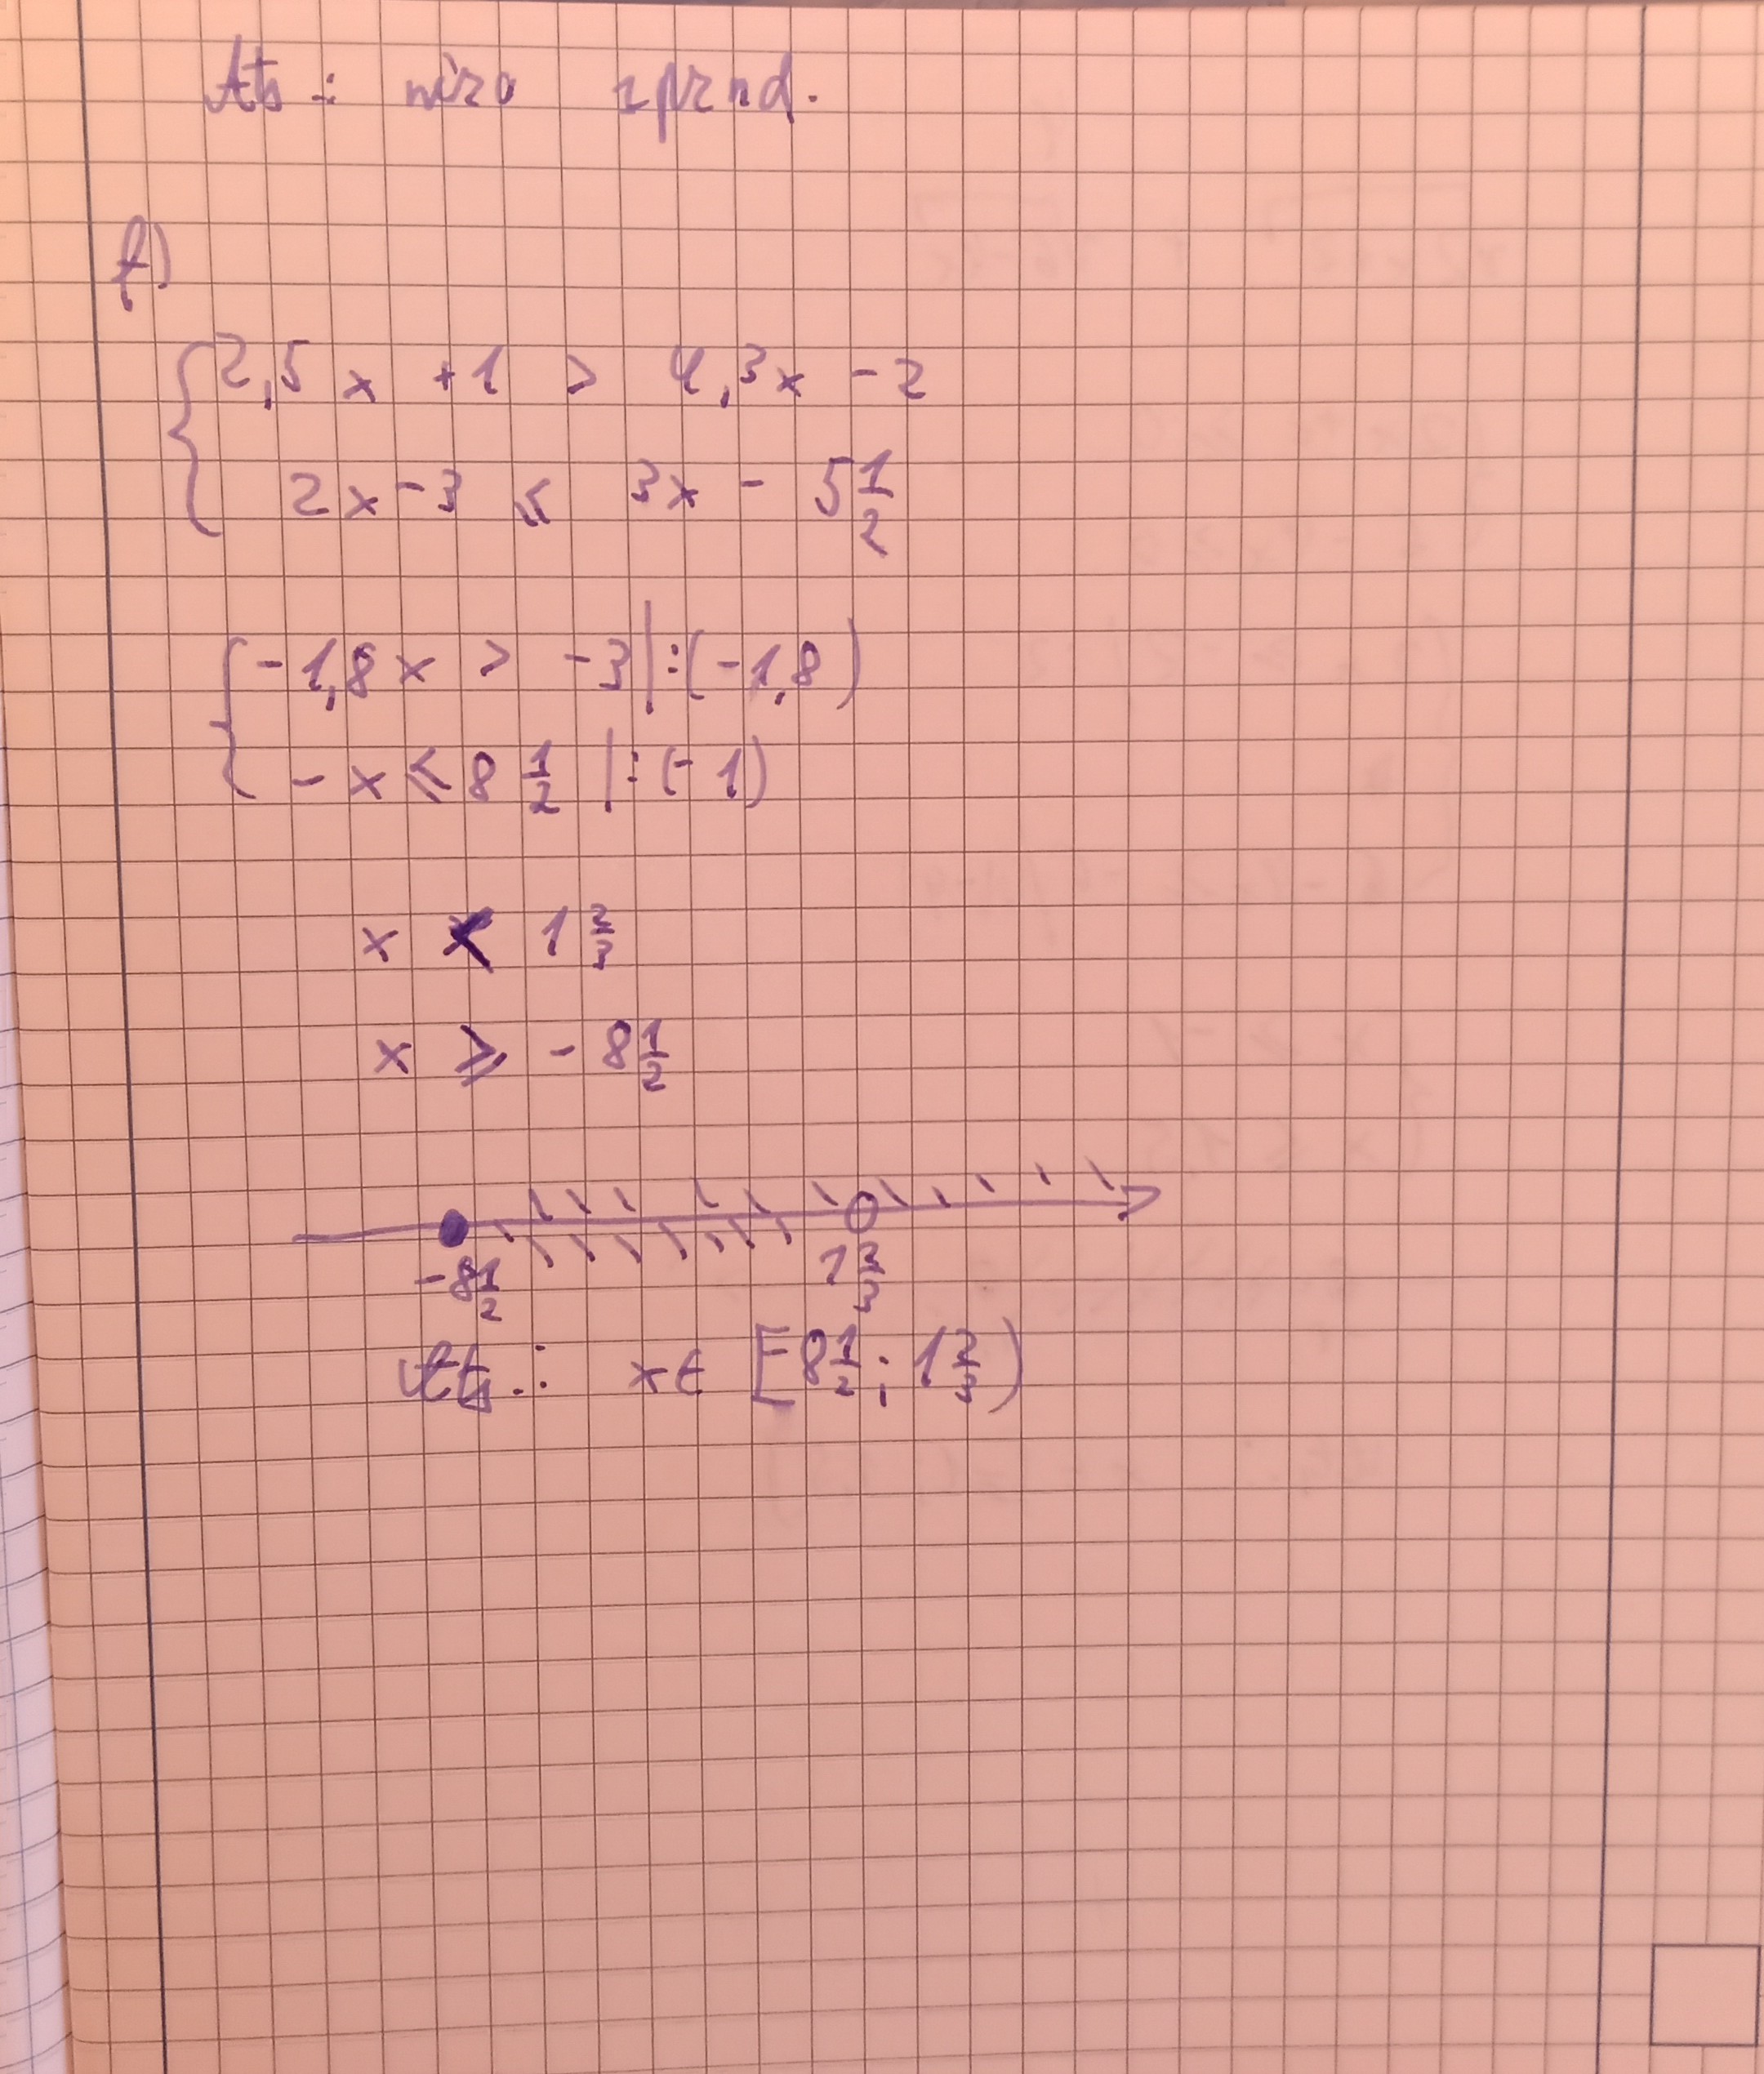 Ats: nėra sprnd.
f)
{ 2,5x + 1 > 4,3x - 2
2x - 3 ≤ 3x - 5 1/2
{ -1,8x > -3 | :(-1,8)
-x ≤ 8 1/2 | :(-1)
x < 1 2/3
x ≥ -8 1/2
-8 1/2 1 2/3
Ats.: x ∈ [-8 1/2; 1 2/3)